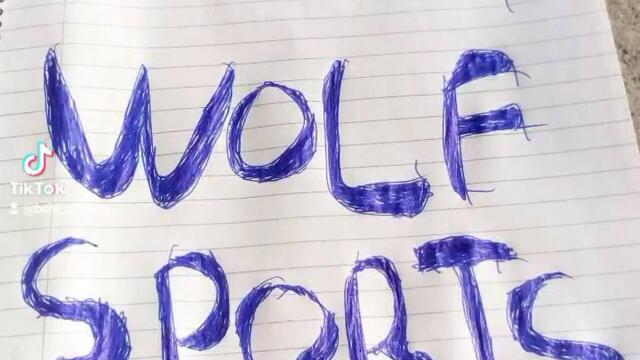 WOLF
SPORTS
TikTok